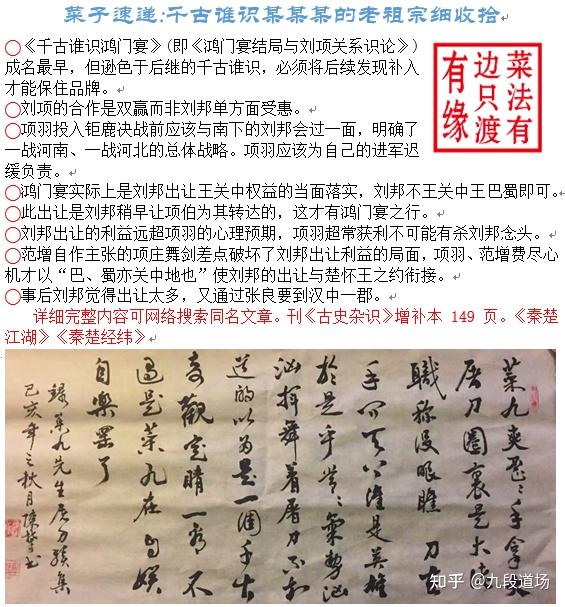 菜子速递:千古谁识某某某的老祖宗细收拾
〇《千古谁识鸿门宴》(即《鸿门宴结局与刘项关系识论》)
成名最早，但逊色于后继的千古谁识，必须将后续发现补入
才能保住品牌。
〇刘项的合作是双赢而非刘邦单方面受惠。
〇项羽投入钜鹿决战前应该与南下的刘邦会过一面，明确了
一战河南、一战河北的总体战略。项羽应该为自己的进军迟
缓负责。
菜法有
边只渡
有缘
〇鸿门宴实际上是刘邦出让王关中权益的当面落实，刘邦不王关中王巴蜀即可。
〇此出让是刘邦稍早让项伯为其转达的，这才有鸿门宴之行。
〇刘邦出让的利益远超项羽的心理预期，项羽超常获利不可能有杀刘邦念头。
〇范增自作主张的项庄舞剑差点破坏了刘邦出让利益的局面，项羽、范增费尽心
机才以“巴、蜀亦关中地也”使刘邦的出让与楚怀王之约衔接。
〇事后刘邦觉得出让太多，又通过张良要到汉中一郡。
详细完整内容可网络搜索同名文章。刊《古史杂识》增补本 149 页。《秦楚
江湖》《秦楚经纬》
菜九爽歪歪手拿大
屠刀圈裏是大活
職称没眼瞧 刀
手 天下谁是英雄
於是乎 氣势汹
汹挥舞着屠刀不知
的以为是一個千古
奇觀定睛一看 不
過是菜九在自娱
自樂罢了
録菜九先生屠刀 集
己亥年之秋月陳 書
知乎 @九段道场